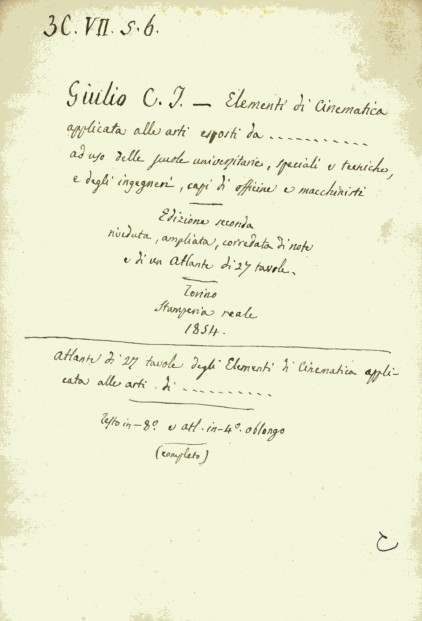 3C. VII. 5. 6.
Giulio C. I. — Elementi di Cinematica
applicata alle arti esposti da ...........
ad uso delle scuole universitarie, speciali e tecniche,
e degli ingegneri, capi di officine e macchinisti
Edizione seconda
riveduta, ampliata, corredata di note
e di un Atlante di 27 tavole.
Torino
Stamperia reale
1854.
Atlante di 27 tavole degli Elementi di Cinematica appli-
cata alle arti di ..........
Testo in-8º. e atl. in-4º. oblongo
(completo)